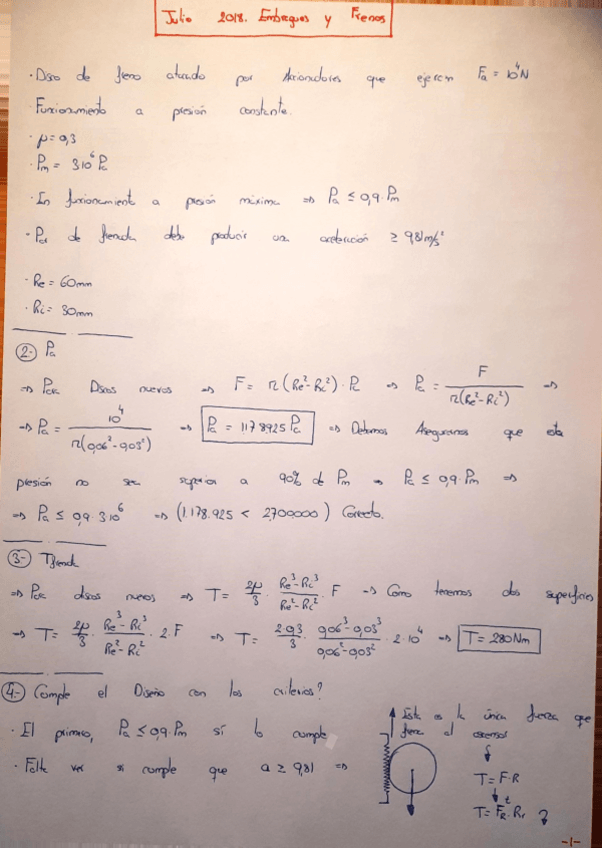 Julio 2018. Embragues y Frenos
· Disco de freno atuado por Accionadores que ejercen Fa = 10^4 N
· Funcionamiento a presión constante.
· μ = 0,3
· Pm = 3·10^6 Pa
· En funcionamiento a presión máxima ⇒ Pa ≤ 0,9·Pm
· Par de frenada debe producir una aceleración ≥ 9,81 m/s²
· Re = 60mm
· Ri = 30mm
2- Pa
⇒ Para Discos nuevos ⇒ F = π(Re²-Ri²)·Pa ⇒ Pa = F / π(Re²-Ri²) ⇒
⇒ Pa = 10^4 / π(0,06²-0,03²) ⇒ Pa = 1178925 Pa ⇒ Debemos Asegurarnos que esta
presión no sea superior a 90% de Pm ⇒ Pa ≤ 0,9·Pm ⇒
⇒ Pa ≤ 0,9·3·10^6 ⇒ (1.178.925 < 2700000) Correcto.
3- Tfrenada
⇒ Para discos nuevos ⇒ T = 2μ/3 · Re³-Ri³/Re²-Ri² · F ⇒ Como tenemos dos superficies
⇒ T = 2μ/3 · Re³-Ri³/Re²-Ri² · 2·F ⇒ T = 2·0,3/3 · 0,06³-0,03³/0,06²-0,03² · 2·10^4 ⇒ T = 280Nm
4- Cumple el Diseño con los criterios?
· El primero, Pa ≤ 0,9·Pm sí lo cumple
· Falta ver si cumple que a ≥ 9,81 ⇒
Esta es la única fuerza que
frena el ascensor
T = F·R
T = FR·Rt
-1-